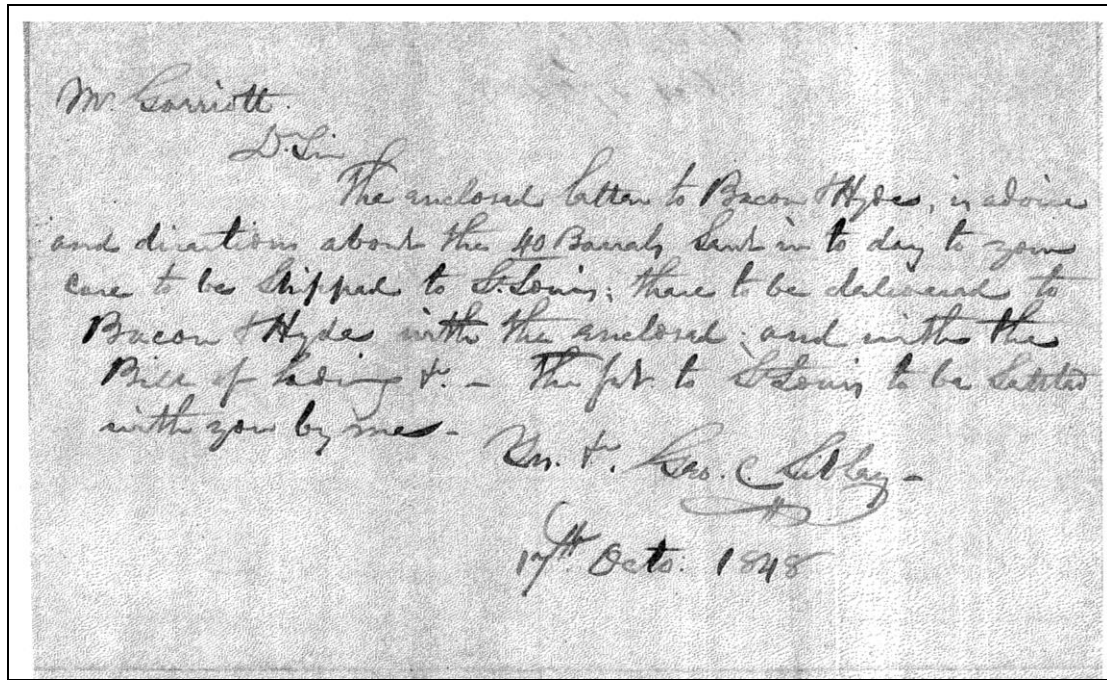 Mr Garriott.
D. Sir
The enclosed letter to Bacon & Hyde, is advice
and directions about the 40 Barrels Sent in to day to your
care to be Shipped to St. Louis; there to be delivered to
Bacon & Hyde with the enclosed; and with the
Bill of Lading &c. - The frt. to St Louis to be Settled
with you by me -
Yrs. &c. Geo. C. Sibley -
17th Octo. 1848